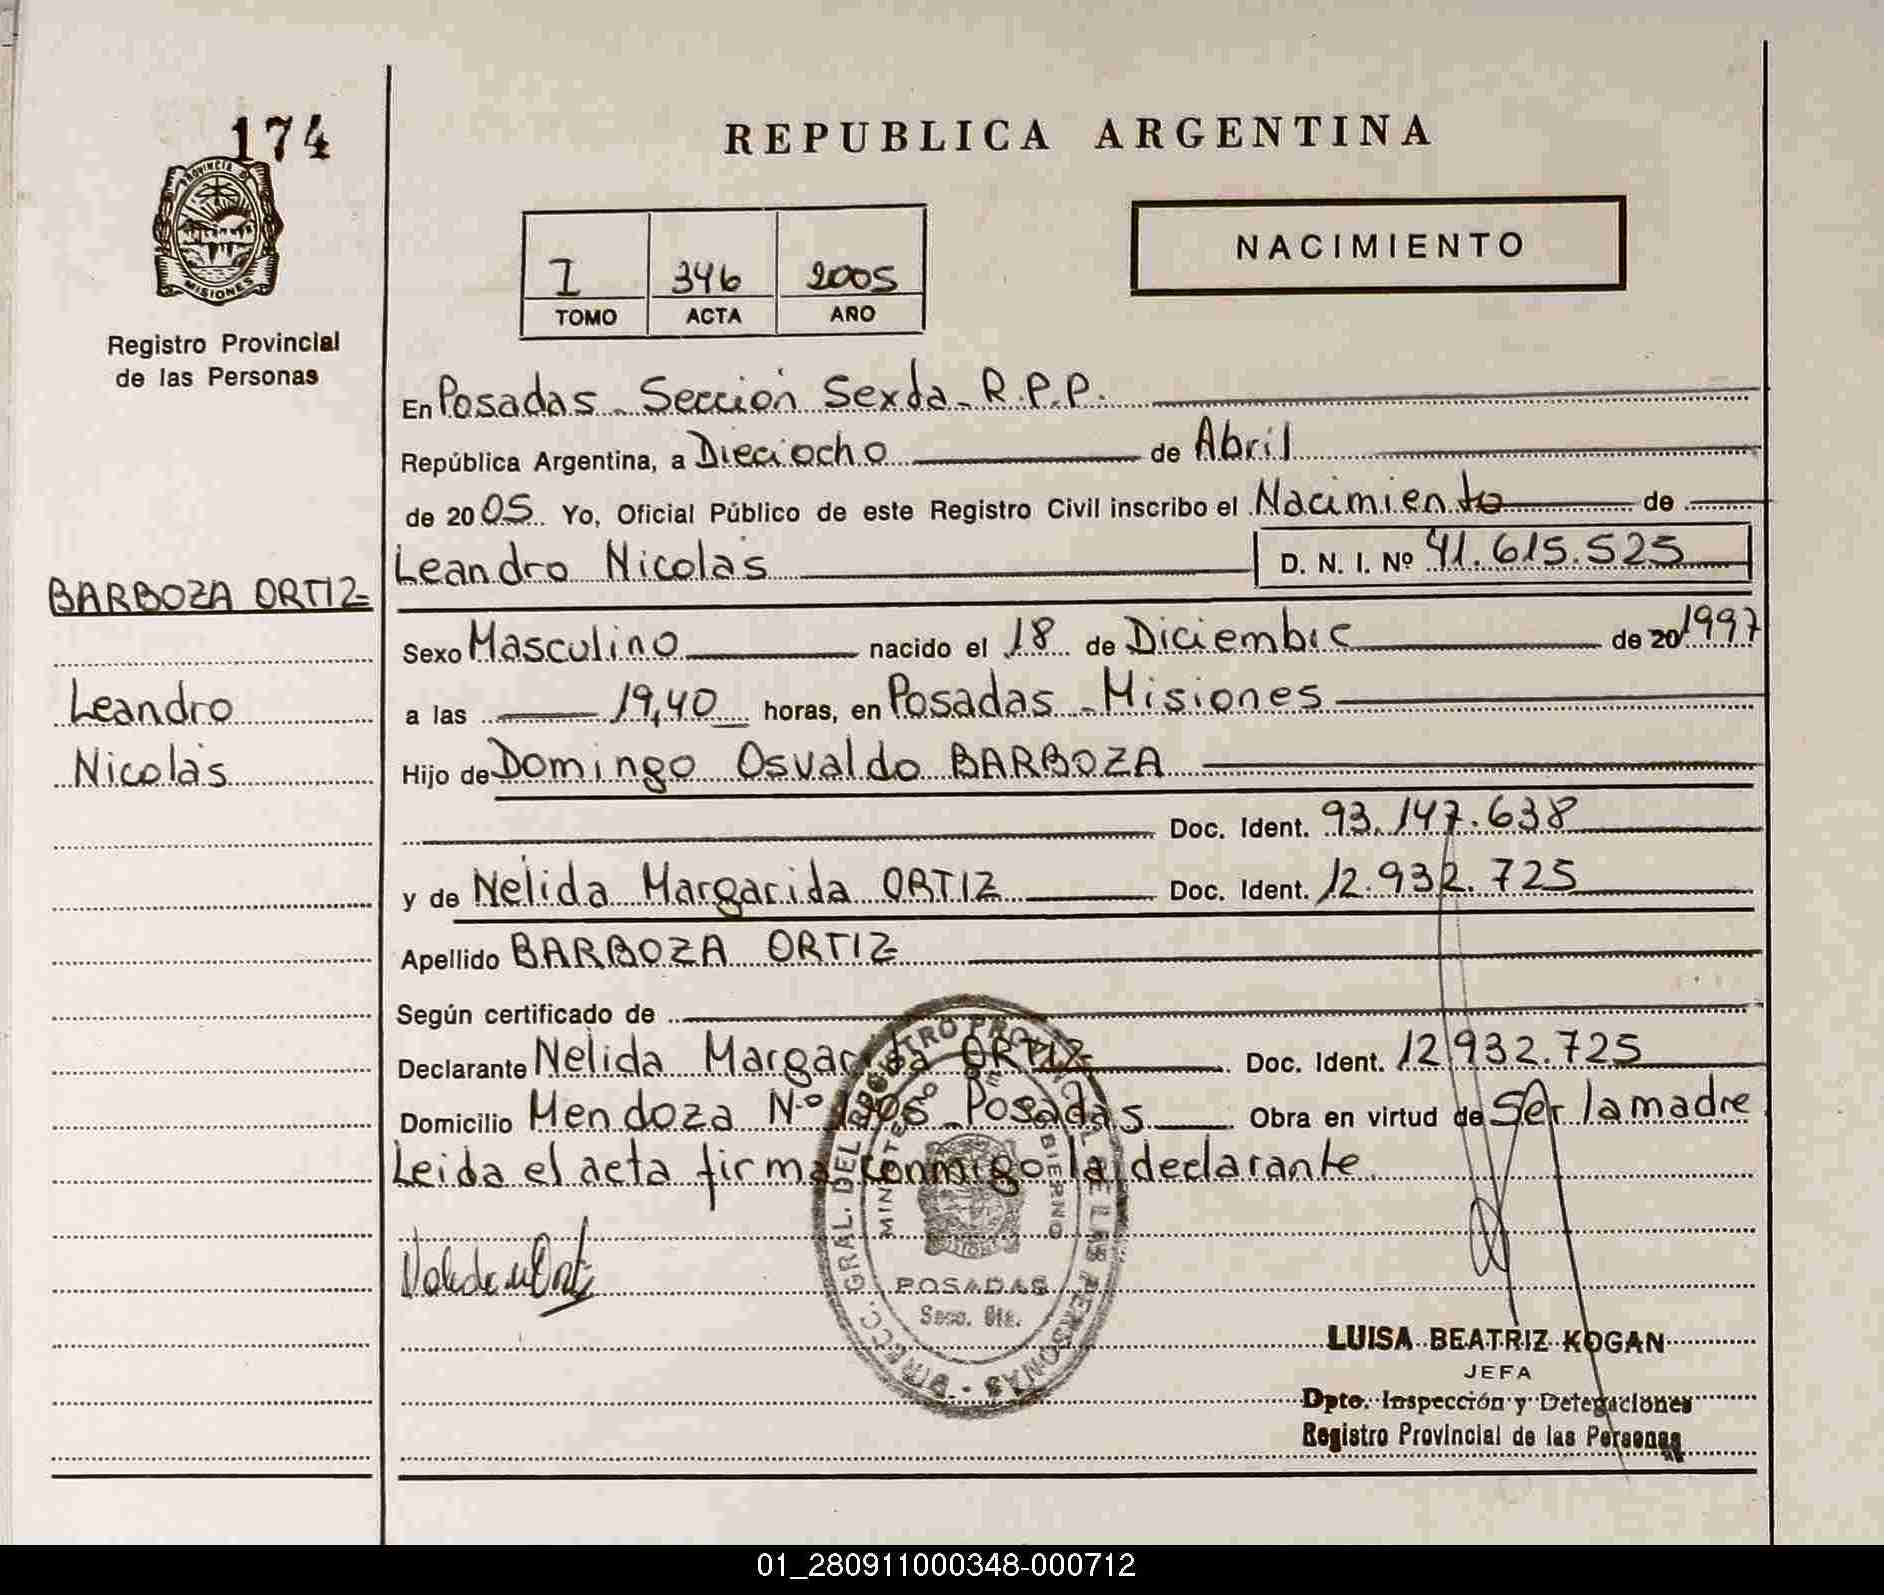 174
PROVINCIA DE
MISIONES
Registro Provincial
de las Personas
REPUBLICA ARGENTINA
I 346 2005
TOMO ACTA AÑO
NACIMIENTO
En Posadas - Sección Sexta - R.P.P.
República Argentina, a Dieciocho de Abril
de 2005 Yo, Oficial Público de este Registro Civil inscribo el Nacimiento de
Leandro Nicolás D. N. I. Nº 41.615.525
BARBOZA ORTIZ
Leandro
Nicolás
Sexo Masculino nacido el 18 de Diciembre de 20 1997
a las 19,40 horas, en Posadas - Misiones
Hijo de Domingo Osvaldo BARBOZA
Doc. Ident. 93.147.638
y de Nélida Margarida ORTIZ Doc. Ident. 12.932.725
Apellido BARBOZA ORTIZ
Según certificado de
Declarante Nélida Margarida ORTIZ Doc. Ident. 12.932.725
Domicilio Mendoza Nº - Posadas Obra en virtud de Ser la madre
Leida el acta firma conmigo la declarante.
DIRECC. GRAL. DEL REGISTRO PROVINCIAL DE LAS PERSONAS
MINISTERIO DE GOBIERNO
POSADAS
LUISA BEATRIZ KOGAN
JEFA
Dpto. Inspección y Delegaciones
Registro Provincial de las Personas
01_280911000348-000712